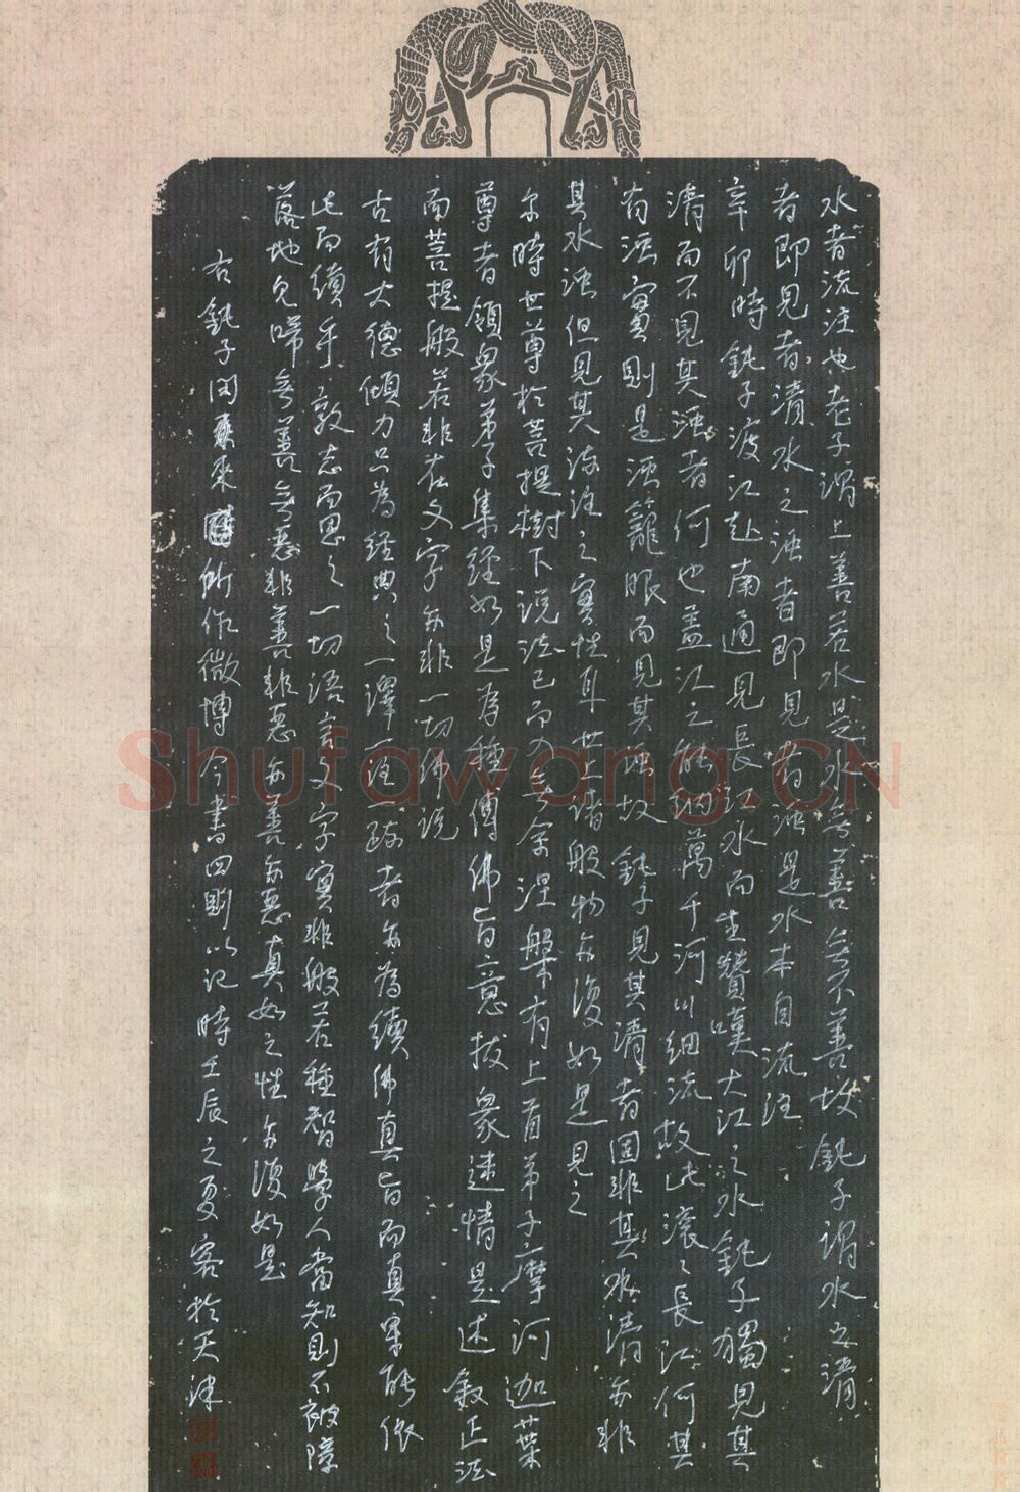 水者流注也老子谓上善若水是水無善無不善故鈍子谓水之清
者即見者清水之浊者即見者浊是水本自流注
辛卯時鈍子渡江赴南通見長江水而生贊嘆大江之水鈍子獨見其
清而不見其浊者何也蓋江之能納萬千河川細流故此滚〻長江何其
有浊實則是浊籠眼而見其浊故鈍子見其清者固非其水清亦非
其水浊但見其流注之實性耳世上諸般物亦復如是見之
尔時世尊於菩提樹下説法已而入無余涅槃有上首弟子摩河迦葉
尊者領衆弟子集經如是為種傳佛旨意拔衆迷情是述叙正法
而菩提般若非在文字亦非一切佛説
古有大德傾力只為經典之一譯一注一疏者亦為續佛真旨而真寔能依
此而續乎敦志而思之一切语言文字寔非般若種智學人當知則不被障
落地兒啼無善無惡非善非惡亦善亦惡真如之性亦復如是
右鈍子閑来所作微博今書四則以记時壬辰之夏客於天津
Shufawang.CN